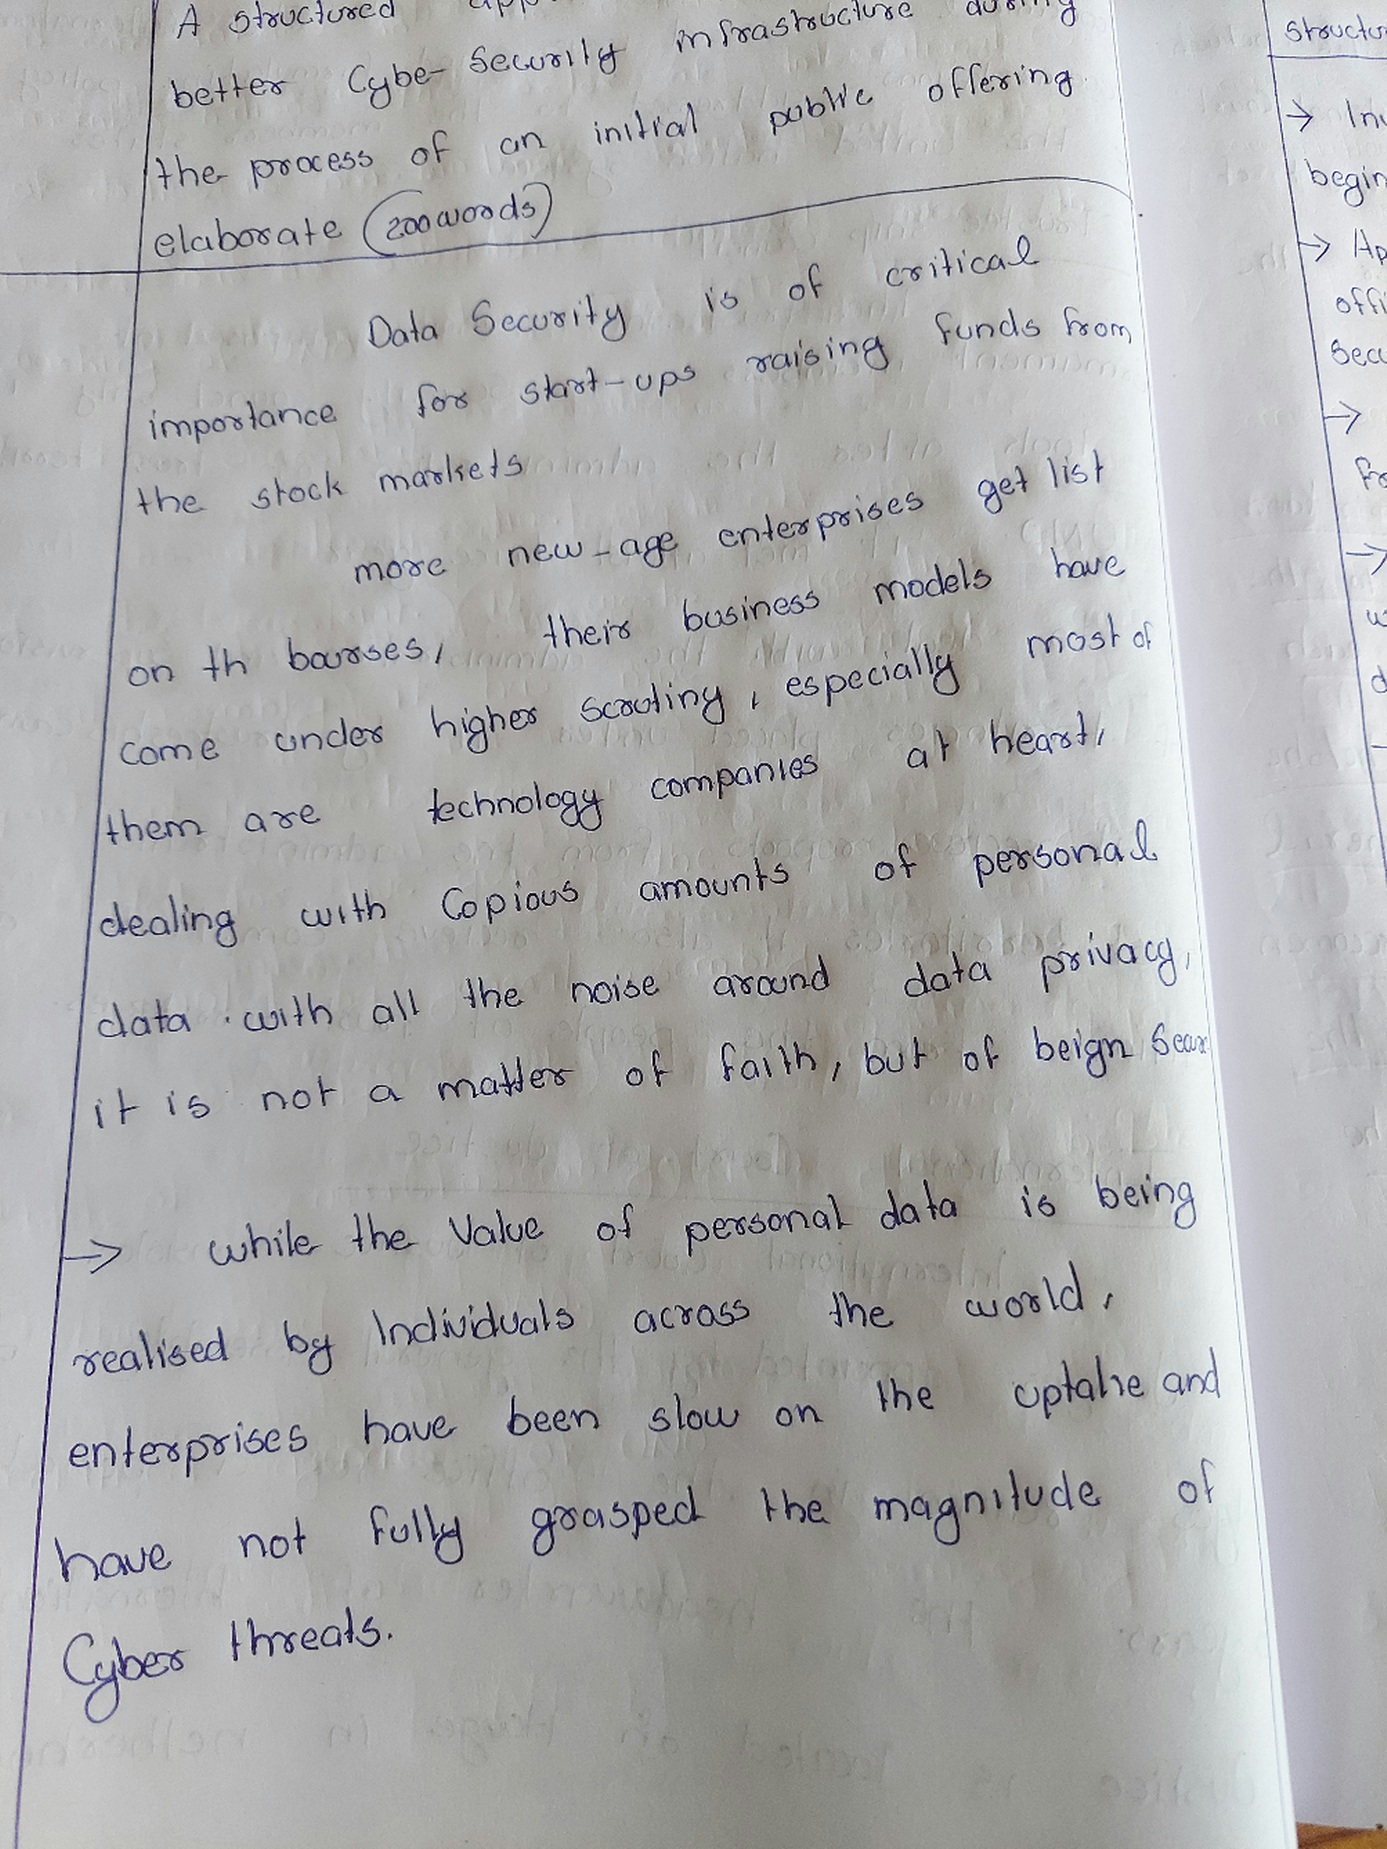 A structured
better Cybe- Security infrastructure during
the process of an initial public offering
elaborate (200 words)
Data Security is of critical
importance for start-ups raising funds from
the stock markets
more new-age enterprises get list
on th bourses, their business models have
come under higher scrutiny, especially most of
them are technology companies at heart,
dealing with Copious amounts of personal
data. with all the noise around data privacy,
it is not a matter of faith, but of beign
→ while the Value of personal data is being
realised by Individuals across the world,
enterprises have been slow on the uptake and
have not fully grasped the magnitude of
Cyber threats.
→
begin
→
→
→